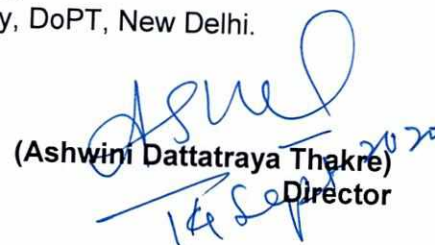 y, DoPT, New Delhi.
(Ashwini Dattatraya Thakre)
Director
14 Sept 2020